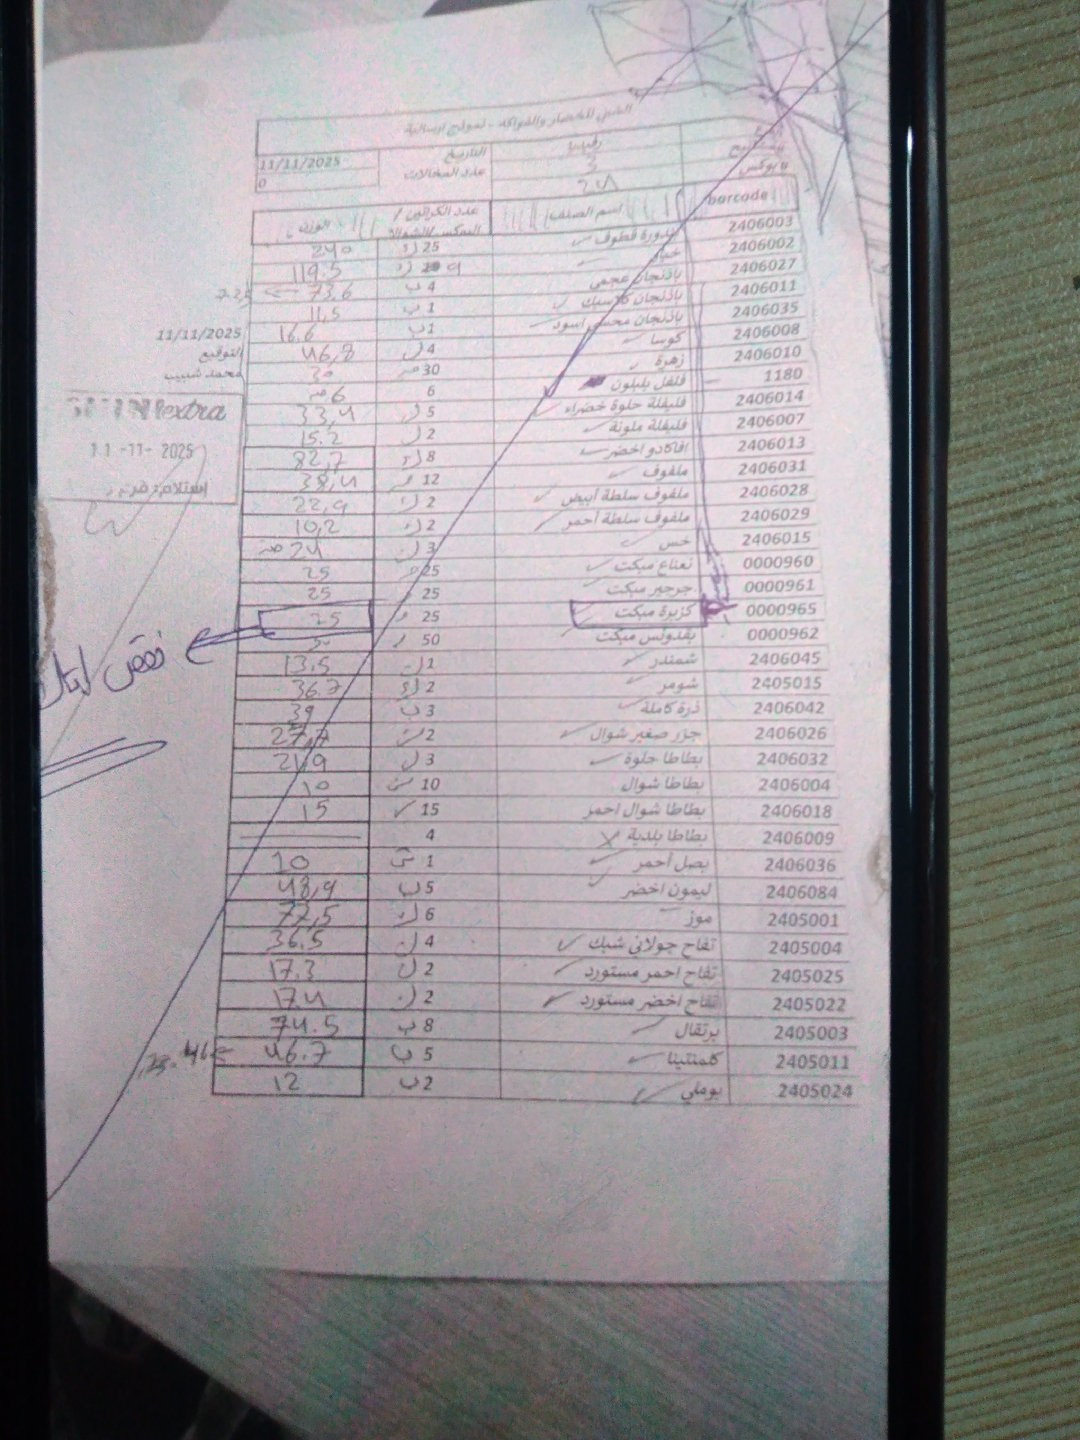 الشني للخضار والفواكه - نموذج ارسالية
رفيديا التاريخ 11/11/2025
3 عدد المشالات 0
بوكس 24
barcode اسم الصنف عدد الكراتين / البوكس/الشوال الوزن
2406003 بندورة قطوف 25 240
2406002 خيار 9 119.5
2406027 باذنجان عجمي 4 ب 73.6
2406011 باذنجان كلاسيك 1 ب 11,5
2406035 باذنجان محشي اسود 1 ب 16.6
2406008 كوسا 4 46,8
2406010 زهرة 30 30
1180 فلفل بلبلون 6 6
2406014 فليفلة حلوة خضراء 5 33,4
2406007 فليفلة ملونة 2 15.2
2406013 افاكادو اخضر 8 82,7
2406031 ملفوف 12 38,4
2406028 ملفوف سلطة أبيض 2 22,9
2406029 ملفوف سلطة أحمر 2 10,2
2406015 خس 3 24
0000960 نعناع مبكت 25 25
0000961 جرجير مبكت 25 25
0000965 كزبرة مبكت 25 25
0000962 بقدونس مبكت 50 50
2406045 شمندر 1 13.5
2405015 شومر 2 36.7
2406042 ذرة كاملة 3 ب 39
2406026 جزر صغير شوال 2 27,7
2406032 بطاطا حلوة 3 21,9
2406004 بطاطا شوال 10 10
2406018 بطاطا شوال احمر 15 15
2406009 بطاطا بلدية 4
2406036 بصل أحمر 1 10
2406084 ليمون اخضر 5 ب 48,9
2405001 موز 6 77,5
2405004 تفاح جولاني شبك 4 36.5
2405025 تفاح احمر مستورد 2 17.3
2405022 تفاح اخضر مستورد 2 17.4
2405003 برتقال 8 ب 74.5
2405011 كلمنتينا 5 ب 46.7
2405024 بوملي 2 ب 12
11/11/2025
التوقيع
محمد شبيب
extra
11-11-2025
استلام:
نقص